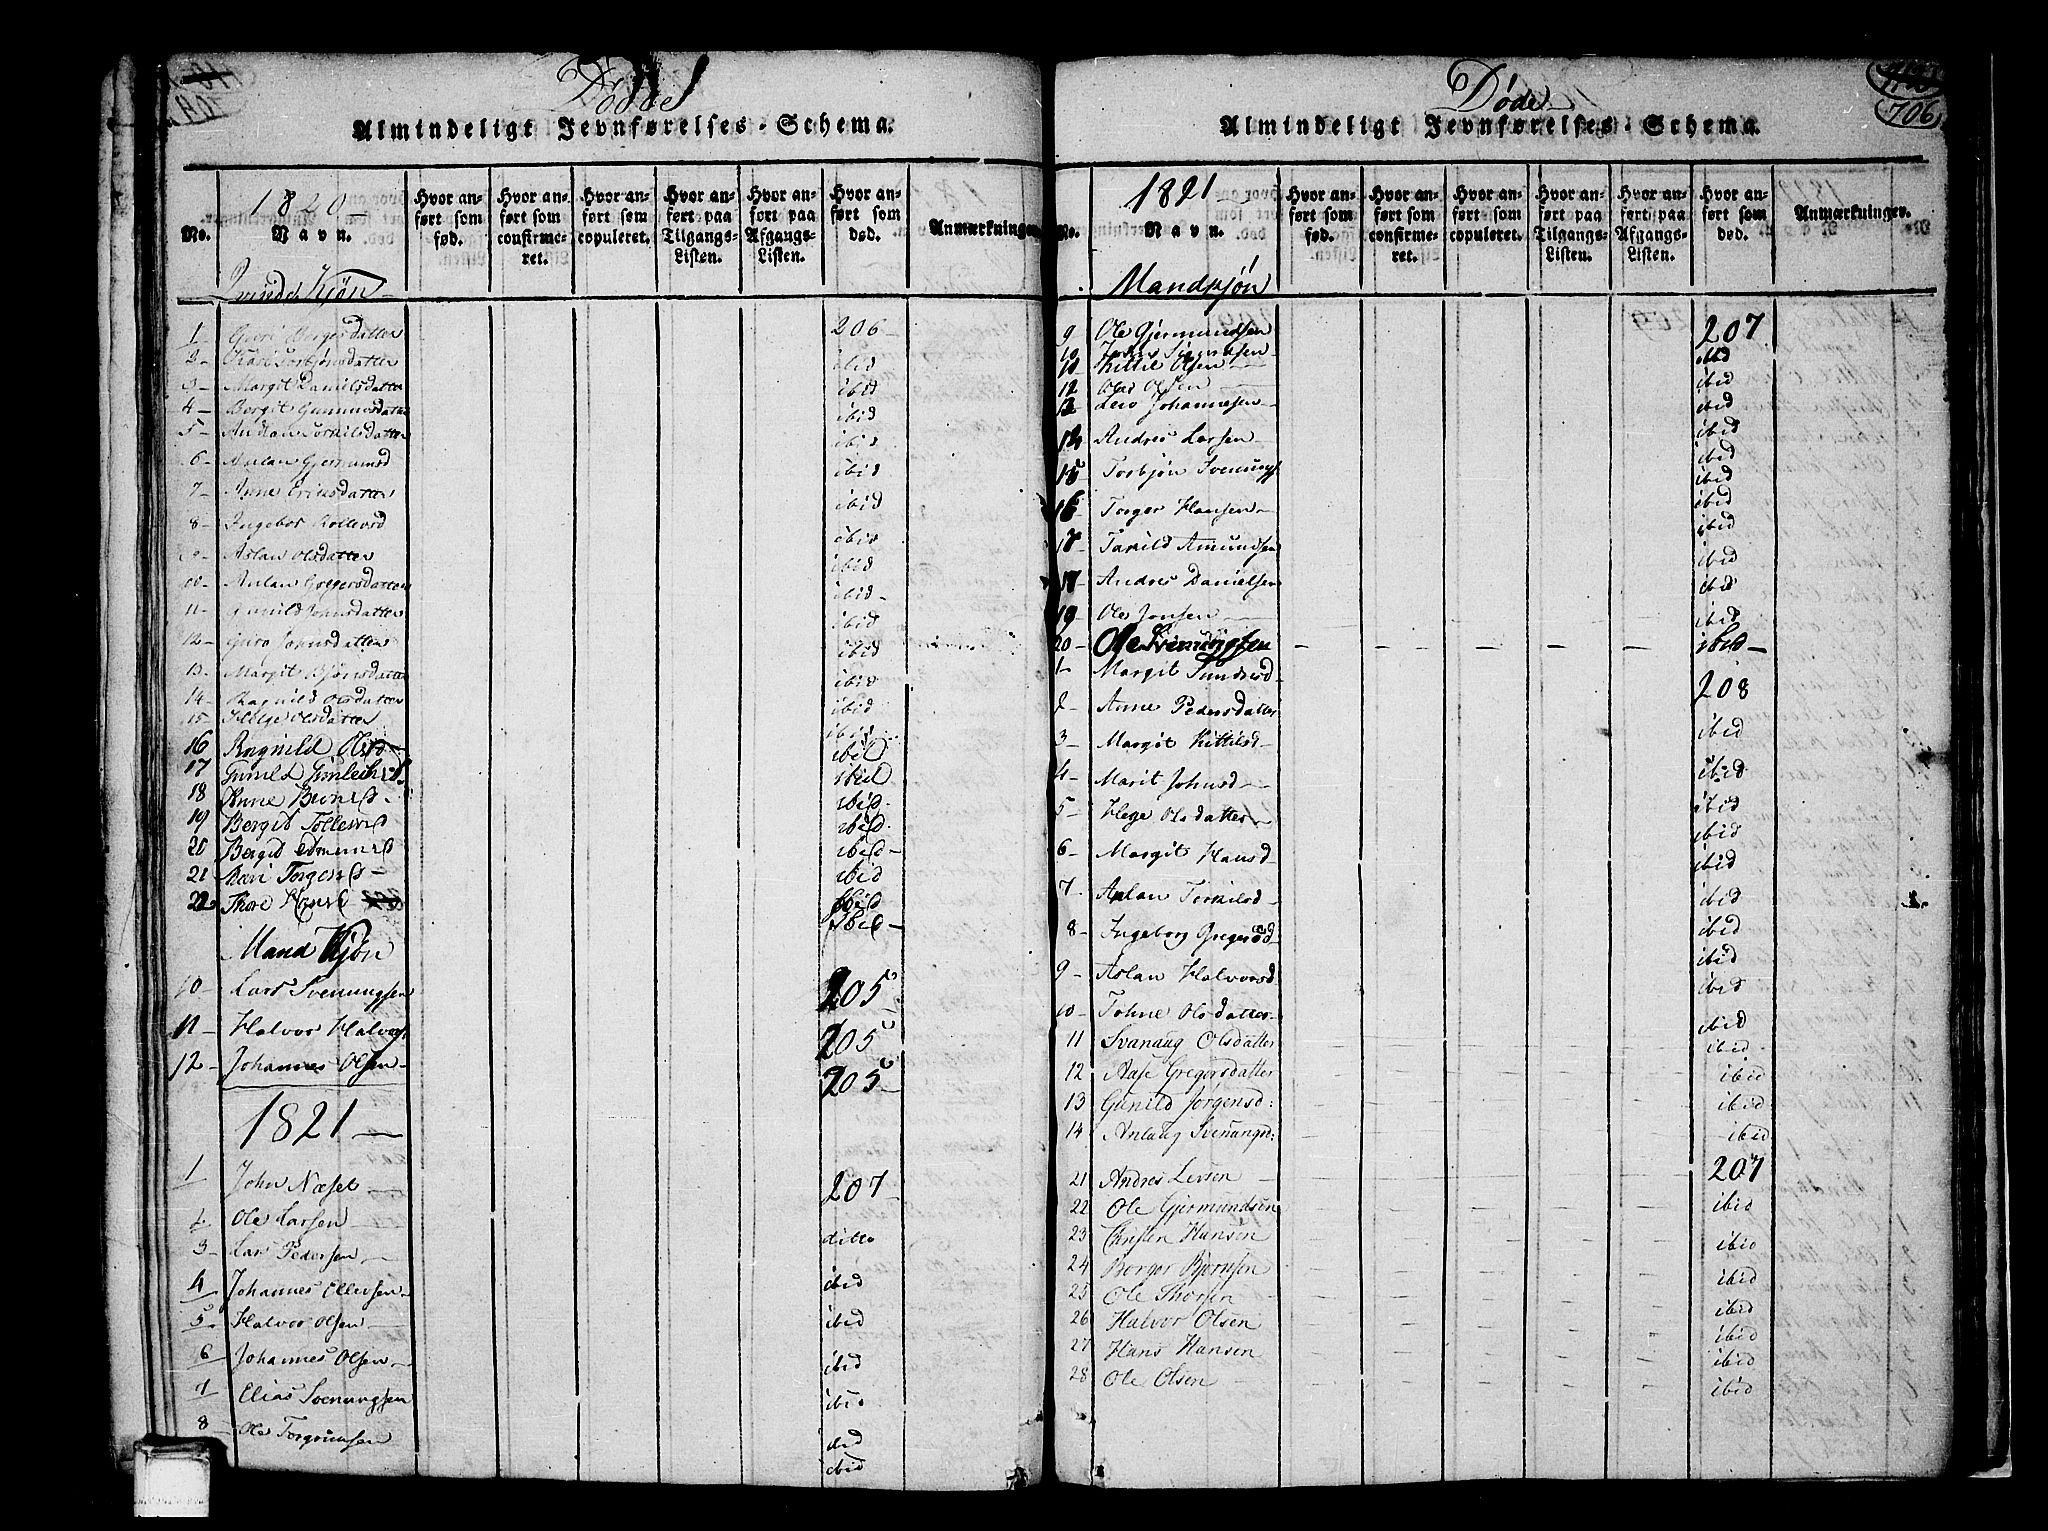 Døde
Almindeligt Jevnførelses-Schema.
No.
1820
Navn.
Hvor anført som fød.
Hvor anført som confirmeret.
Hvor anført som copuleret.
Hvor anført paa Tilgangs-Listen.
Hvor anført paa Afgangs-Listen.
Hvor anført som død.
Anmærkninger.
Qvinde Kjøn
1 Guri Borgersdatter 206
2 Kari Torbjønsdatter ibid
3 Margit Danielsdatter ibid
4 Bergit Gunnursdatter ibid
5 Anlan Torkilsdatter ibid
6 Aslau Gjermunsd ibid
7 Anne Eriksdatter ibid
8 Ingebor Tollevsd ibid
9 Aslau Olsdatter ibid
10 Anlau Gregersdatter ibid
11 Gunild Johnsdatter ibid
12 Guro Johnsdatter ibid
13 Margit Bjønsdatter ibid
14 Ragnild Olsdatter ibid
15 Helge Olsdatter ibid
16 Ragnild Olsd ibid
17 Gunild ibid
18 Anne ibid
19 Bergit Tollevsd ibid
20 Bergit ibid
21 Kari Torgersd ibid
22 Thore ibid
ibid
Mand Kjøn
10 Lars Svenungsen 205
11 Halvor Halvors 205
12 Johannes Olsen 205
1821
1 John Næset 207
2 Ole Larsen ditto
3 Lars Pedersen
4 Johannes Ollevsen ibid
5 Halvor Olsen ibid
6 Johannes Olsen ibid
7 Elias Svenungsen ibid
8 Ole Torgrimsen ibid
ibid
Døde
706
Almindeligt Jevnførelses-Schema.
No.
1821
Navn.
Hvor anført som fød.
Hvor anført som confirmeret.
Hvor anført som copuleret.
Hvor anført paa Tilgangs-Listen.
Hvor anført paa Afgangs-Listen.
Hvor anført som død.
Anmærkninger.
Mandkjøn
9 Ole Gjermundsen 207
10 ibid
11 Kittil Olsen ibid
12 Olav Olsen ibid
13 Leiv Johannesen ibid
14 Andres Larsen ibid
15 Torbjøn Svenungs ibid
16 Torger Hansen ibid
17 Tarkild Amundsen ibid
17 Andres Danielsen ibid
19 Ole Jonsen ibid
20 Ole Svenungsen ibid
1 Margit Sundresd 208
2 Anne Pedersdatter ibid
3 Margit Kittilsd ibid
4 Marit Johnsd ibid
5 Hege Olsdatter ibid
6 Margit Hansd ibid
7 Aslau Torkilsd ibid
8 Ingeborg Gregersd ibid
9 Aslau Halvorsd ibid
10 Tohne Olsdatter ibid
11 Svanaug Olsdatter ibid
12 Aase Gregersdatter ibid
13 Gunild Jørgensd: ibid
14 Anlaug Svenungsd: ibid
21 Andres Levsen 207
22 Ole Gjermundsen ibid
23 Christen Hansen ibid
24 Borger Bjørnsen ibid
25 Ole Thorsen ibid
26 Halvor Olsen ibid
27 Hans Hansen ibid
28 Ole Olsen ibid